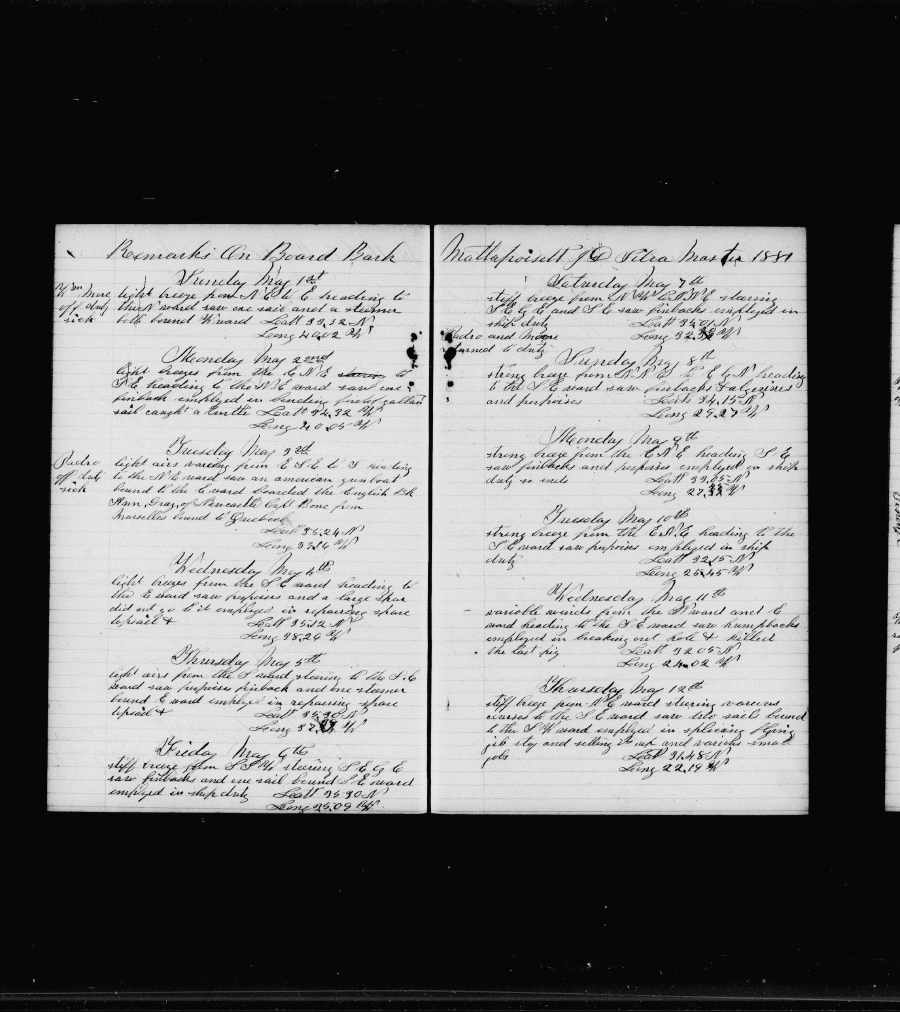 Remarks On Board Bark
Sunday May 1st
Wm More
off duty
sick
light breeze from N E to E heading to
the N ward saw one sail and a steamer
both bound W ward Latt 33.32 N
Long 40.02 W
Monday May 2nd
light breezes from the E N E to
S E heading to the N E ward saw one
finback employed in bending foretopgallant
sail caught a turtle Latt 34.32 N
Long 40.05 W
Tuesday May 3rd
Pedro
off duty
sick
light airs varying from E S E to S
to the N E ward saw an american gunboat
bound to the E ward boarded the English Bk
Ann Gray, of Newcastle Capt Bone from
Marselles bound to Quebec
Latt 35.24 N
Long W
Wednesday May 4th
light breezes from the S E ward heading to
the E ward saw porpoises and a large spar
did not go to it employed in repairing spare
topsail & Latt 35.12 N
Long 38.26 W
Thursday May 5th
light airs from the S ward steering to the S E
ward saw porpoises finback and one steamer
bound E ward employed in repairing spare
topsail & Latt 35.30 N
Long W
Friday May 6th
stiff breeze from S S W steering S E & E
saw finbacks and one sail bound S E ward
employed in ship duty Latt 35.30 N
Long 35.09 W
Mattapoisett J D Silva Master 1881
Saturday May 7th
stiff breeze from N W to N N E stearing
S E & E and S E saw finbacks employed in
ship duty Latt 35.01 N
Long W
Pedro and Moore
returned to duty
Sunday May 8th
strong breeze from N N E to E & N heading
to the S E ward saw finbacks & algerines
and porpoises Latt 34.15 N
Long 29.27 W
Monday May 9th
strong breeze from the E N E heading S E
saw finbacks and porpoises employed in ship
duty so ends Latt 33.05 N
Long W
Tuesday May 10th
strong breeze from the E N E heading to the
S E ward saw porpoises employed in ship
duty Latt 32.15 N
Long 25.45 W
Wednesday May 11th
variable winds from the N ward and E
ward heading to the S E ward saw humpbacks
employed in breaking out hole & killed
the last pig Latt 32.05 N
Long 24.02 W
Thursday May 12th
stiff breeze from N E ward steering various
courses to the S E ward saw two sails bound
to the S W ward employed in splicing flying
jib stay and setting it up and various small
jobs Latt 31.48 N
Long 22.19 W